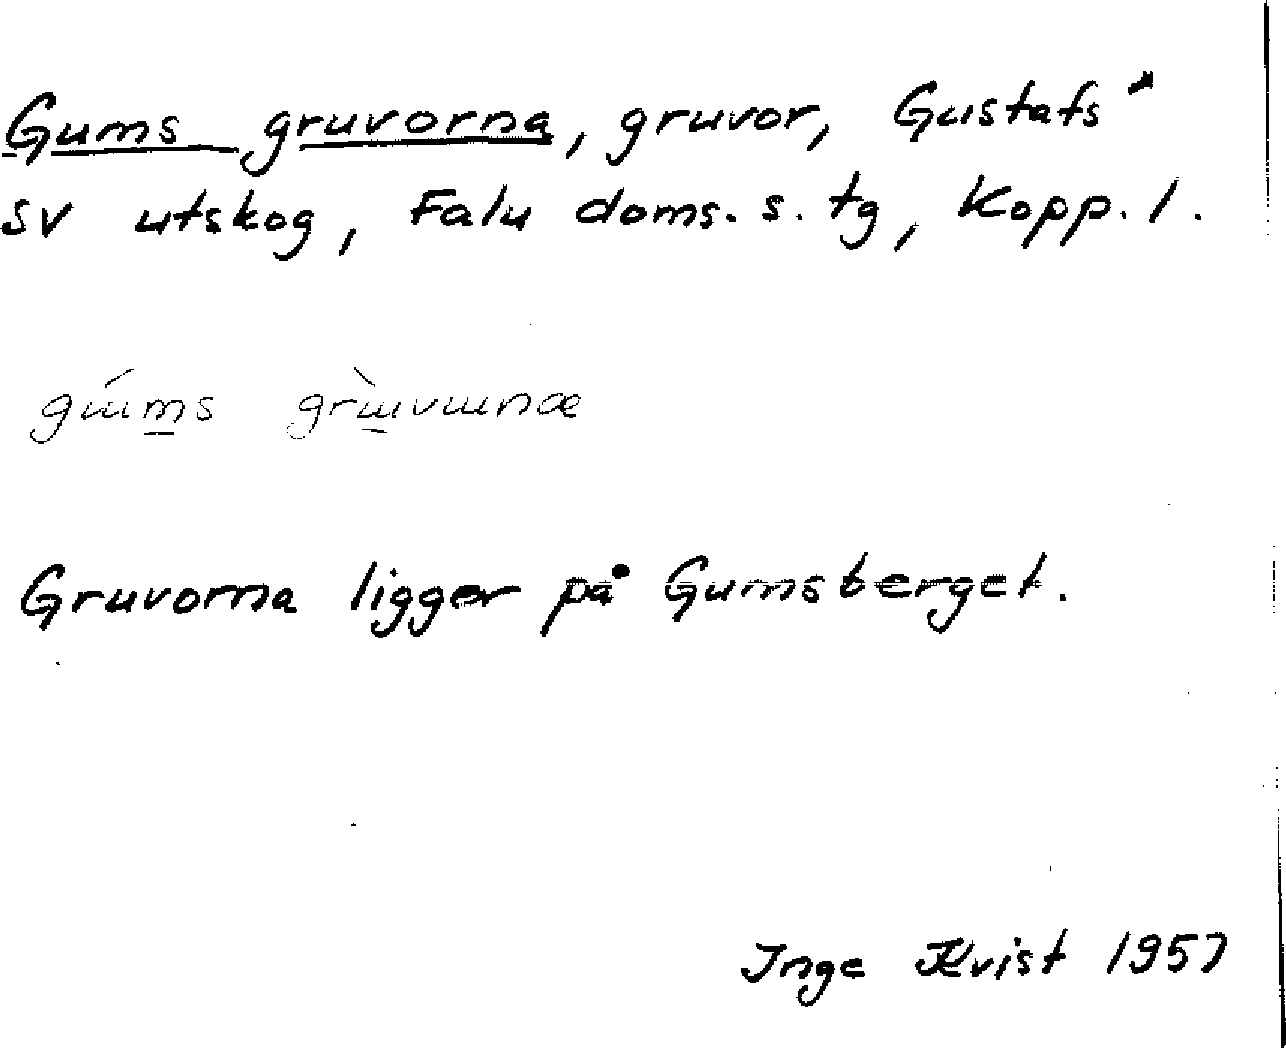 Gums gruvorna, gruvor, Gustafs
SV utskog, Falu doms. s. tg, Kopp. l.
gɯ́m̲s grɯ̲̀vɯnæ
Gruvorna ligger på Gumsberget.
Inge Kvist 1957